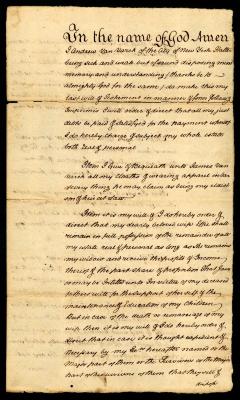 In the name of God Amen
I Andrew Van Varck of the City of New York Hatter
being sick and weak but of sound disposing mind
memory and understanding / thanks be to
almighty God for the same / do make this my
last will & Testament in manner & form following
Imprimis I will order & direct that all my just
debts be paid & satisfied for the payment whereof
I do hereby charge & subject my whole estate
both real & personal
Item I Give & Bequeath unto James Van
Varck all my Cloaths & wearing apparel in bar
of every thing he may claim as being my eldest
son & heir at Law
Item it is my will & I do hereby order &
direct that my dearly beloved wife shall
remain in full possession of the remainder of all
my estate real & personal as long as she remains
my widow and receive the profits & Income
thereof the part share & proportion that I am
or may be Intitled unto In virtue of my deceased
fathers will for the support of her self & the
maintenance & Education of my Children
But in case of the death or remarriage of my
wife then it is my will & I do hereby order &
direct that in case it is thought expedient &
necessary by my Exrs hereafter named or the
Major part of them or the Survivors or the Major
part of the survivors of them that they sell &